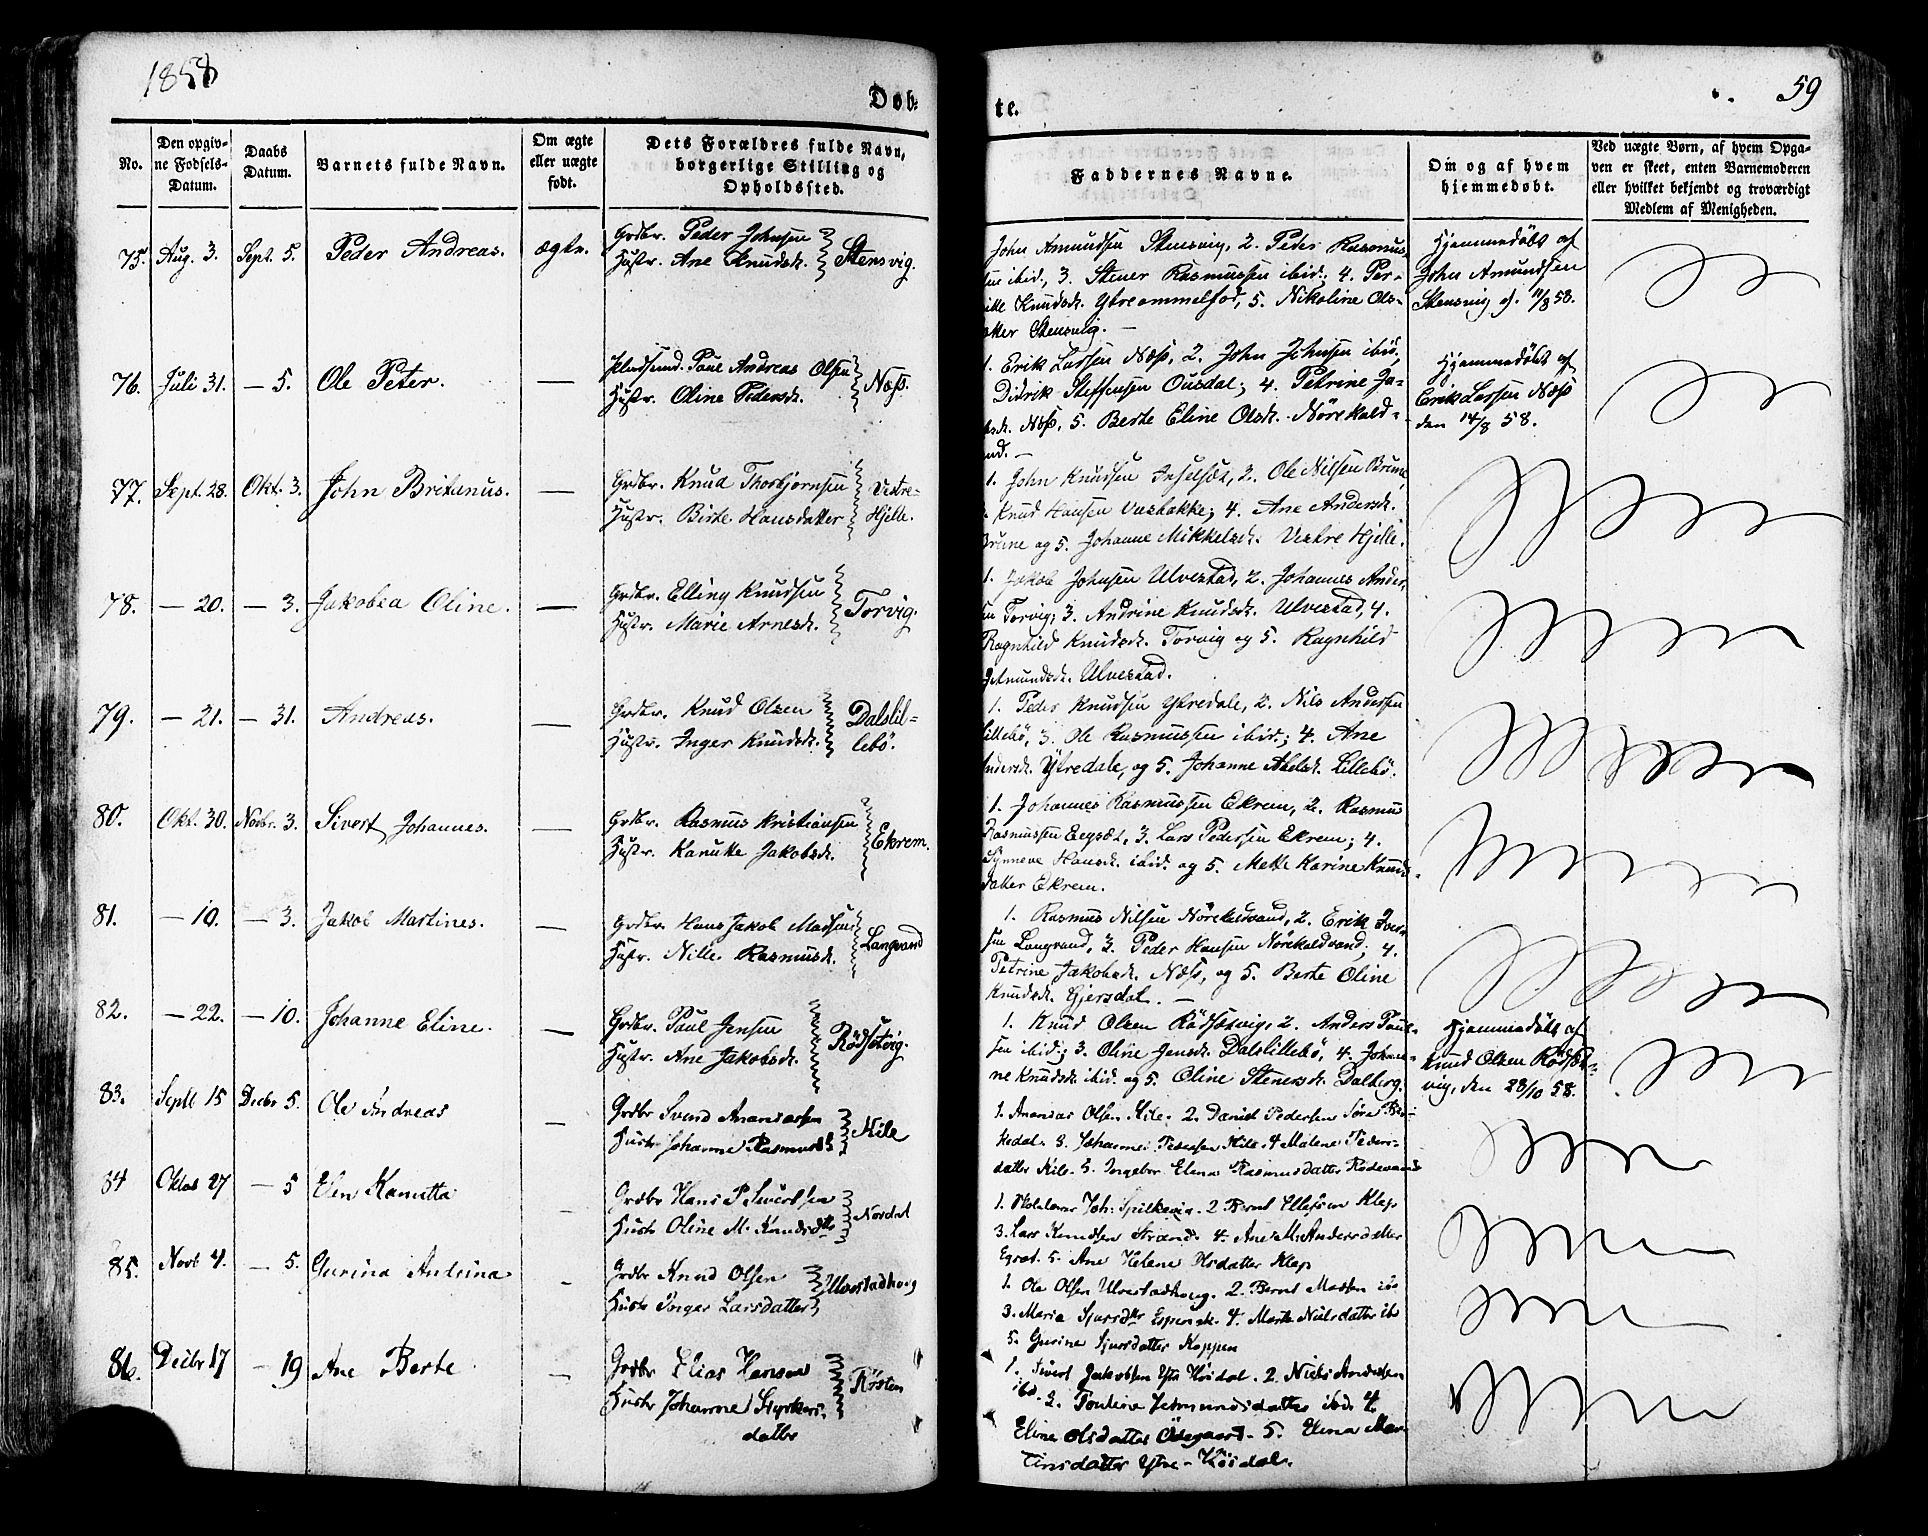 1858
Døb-
te.
59
No.
Den opgiv-
ne Fødsels-
Datum.
Daabs
Datum.
Barnets fulde Navn.
Om ægte
eller uægte
født.
Dets Forældres fulde Navn,
borgerlige Stilling og
Opholdssted.
Faddernes Navne.
Om og af hvem
hjemmedøbt.
Ved uægte Børn, af hvem Opga-
ven er skeet, enten Barnemoderen
eller hvilket bekjendt og troværdigt
Medlem af Menigheden.
75. Aug. 3. Sept. 5. Peder Andreas. ægte.
Grdbr. Peder Johnsen
Hustr. Ane Knudsdr. Stensvig.
John Amundsen Stensvig, 2. Peder Rasmus-
sen ibid., 3. Stener Rasmussen ibid.; 4. Per-
nille Knudsdr. Ytreommelfod, 5. Nikoline Ols-
datter Stensvig. —
Hjemmedøbt af
John Amundsen
Stensvig d. 11/8 58.
76. Juli 31. — 5. Ole Peter. —
Paul Andreas Olsen
Hustr. Oline Pedersdr. Næss.
1. Erik Larsen Næss, 2. John Johnsen ibid.,
Didrik Steffensen Ousdal; 4. Petrine Ja-
Næss, 5. Berte Eline Olsdr. Nörekald-
Hjemmedøbt af
Erik Larsen Næss
den 14/8 58.
77. Sept. 28. Okt. 3. John Britanus. —
Grdbr. Knud Thorbjørnsen
Hustr. Birte Hansdatter Vestre-
Hjelle.
1. John Knudsen Inselset, 2. Ole Nilsen Brune,
Knud Hansen Vasbakke; 4. Ane Andersdr.
Brune og 5. Johanne Mikkelsdr. Vestre Hjelle.
78. — 20. — 3. Jakobea Oline. —
Grdbr. Elling Knudsen
Hustr. Marie Arnesdr. Torvig.
1. Jakob Johnsen Ulvestad, 2. Johannes Ander-
sen Torvig, 3. Andrine Knudsdr. Ulvestad, 4.
Ragnhild Knudsdr. Torvig og 5. Ragnhild
Amundsdr. Ulvestad.
79. — 21. — 31. Andreas. —
Grdbr. Knud Olsen
Hustr. Inger Knudsdr. Dalslil-
lebø.
1. Peder Knudsen Ytredale, 2. Nils Andersen
Lillebø, 3. Ole Rasmussen ibid.; 4. Ane
Andersdr. Ytredale, og 5. Johanne Abelsdr. Lillebø.
80. Okt. 30. Novbr. 3. Sivert Johannes. —
Grdbr. Rasmus Kristiansen
Hustr. Kanutte Jakobsdr. Ekrem.
1. Johannes Rasmussen Ekrem, 2. Rasmus
Rasmussen Eegsæt, 3. Lars Pedersen Ekrem; 4.
Synneve Hansdr. ibid. og 5. Mette Karine Knuds-
datter Ekrem.
81. — 10. — 3. Jakob Martines. —
Grdbr. Hans Jakob Madsen
Hustr. Nille Rasmusdr. Langvand
1. Rasmus Nilsen Nörekaldvand, 2. Erik Iver-
sen Langvand, 3. Peder Hansen Nörekaldvand; 4.
Petrine Jakobsdr. Næss, og 5. Berte Oline
Knudsdr. Gjersdal. —
82. — 22. — 10. Johanne Eline. —
Grdbr. Paul Jensen
Hustr. Ane Jakobsdr. Rödsetvig.
1. Knud Olsen Rödsetvig, 2. Anders Paul-
sen ibid; 3. Oline Jensdr. Dalslillebø, 4. Johan-
ne Knudsdr. ibid. og 5. Oline Stenersdr. Dalberg.
Hjemmedøbt af
Knud Olsen Rödset-
vig, den 28/10 58.
83. Septb 15 Decbr 5. Ole Andreas —
Grdbr Svend Ananiassen
Hustr Johanne Rasmusdtr Kile
1. Ananias Olsen Kile. 2. Daniel Pedersen
3. Johannes Pedersen Kile. 4 Malene Peders-
datter Kile. 5. Ingebor Elena Rasmusdatter Rødsvand
84 Oktob 27 — 5 Elen Kanutta
Grdbr Hans P. Sivertsen
Hustr Oline M. Knudsdtr Nordal
1. Joh. Spilkevig. 2 Bernt Ellefsen Klep
3. Lars Knudsen Strand. 4. Ane M. Andersdatter
Egset. 5. Ane Helene Olsdatter Klep
85. Novb 4. — 5. Gurina Andrina —
Grdbr Knud Olsen
Hustr Inger Larsdatter Ulvestadhoug
1. Ole Olsen Ulvestadhoug. 2. Bernt Madsen ibd
3. Maria Sjursdtr Espenak. 4. Marte Nielsdatter ib
5. Gurine Sjursdatter Koppen
86. Decbr 17 — 19 Ane Berte —
Grdbr Elias Hansen
Hustr Johanne Styrkers-
datter Rösten
1. Sivert Jakobsen Ytre Höidal. 2. Niels Andersen
ibd. 3. Jetmundsdatter ibd. 4.
Eline Olsdatter Ödegaard. 5. Elena Mar-
tinsdatter Ytre-Höidal.